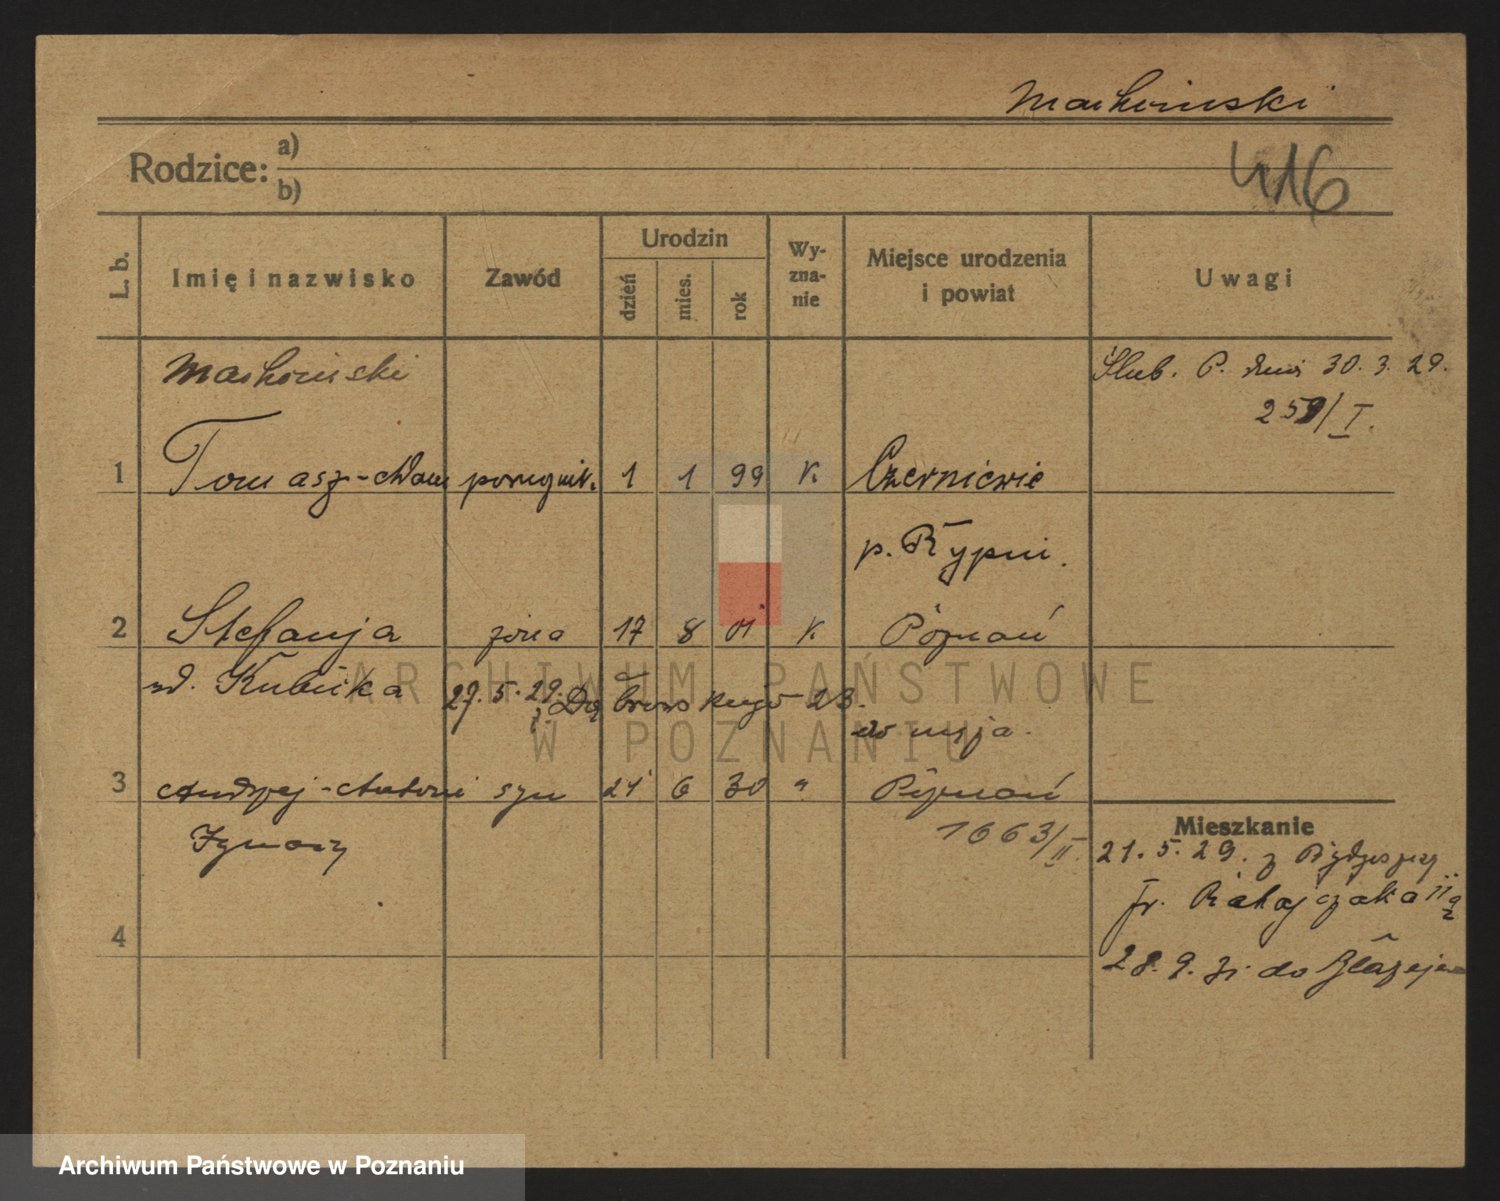 Machoiński
Rodzice: a)
b)
416
L. b.
Imię i nazwisko
Zawód
Urodzin
dzień
mies.
rok
Wy-
zna-
nie
Miejsce urodzenia
i powiat
Uwagi
Machoiński
Ślub. P. dnia 30. 3. 29.
259/I.
1 Tomasz-Adam 1 1 99 K. Czerniewie
p. Rypin.
2 Stefanja żona 17 8 01 K. Poznań
ud. Kubicka 27. 5. 29. Dąbrowskiego 23.
do męża.
3 Andrzej-Antoni syn 21 6 30 " Poznań
Ignacy 1663/II.
Mieszkanie
21. 5. 29. z Bydgoszczy
Fr. Ratajczaka 11a
4
28. 9. 31. do
ARCHIWUM PAŃSTWOWE
W POZNANIU
Archiwum Państwowe w Poznaniu